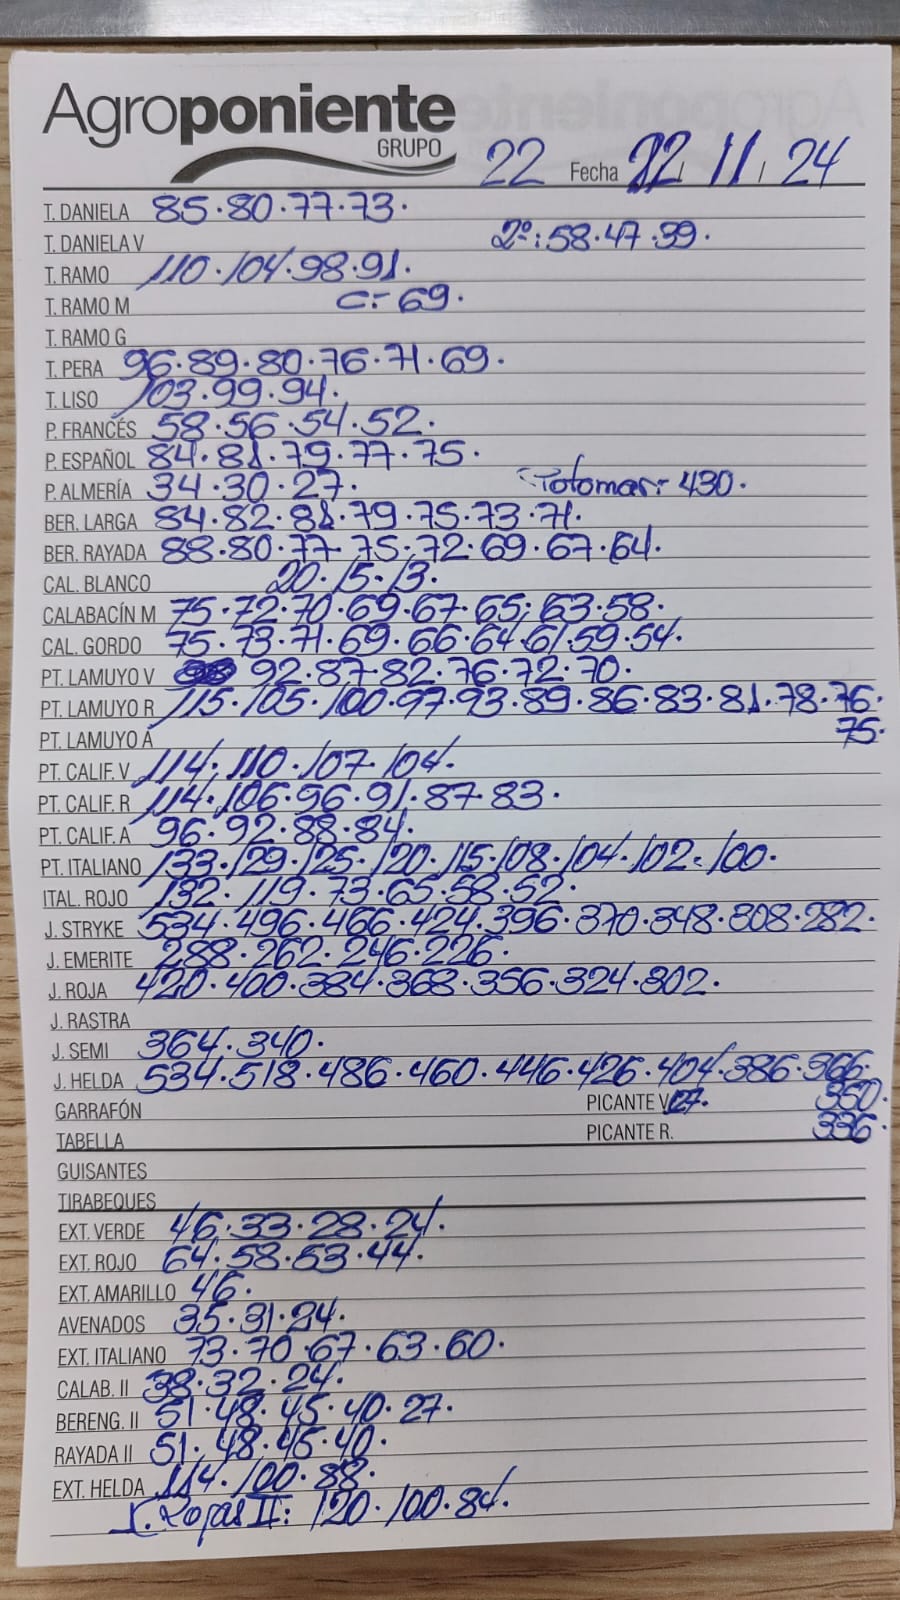 Agroponiente
GRUPO
22 Fecha 22 / 11 / 24
T. DANIELA 85·80·77·73·
T. DANIELA V 2º:58·47·39·
T. RAMO 110·104·98·91·
T. RAMO M C:-69·
T. RAMO G
T. PERA 96·89·80·76·71·69·
T. LISO 103·99·94·
P. FRANCÉS 58·56·54·52·
P. ESPAÑOL 84·81·79·77·75·
P. ALMERÍA 34·30·27· 430·
BER. LARGA 84·82·81·79·75·73·71·
BER. RAYADA 88·80·77·75·72·69·67·64·
CAL. BLANCO 20·15·13·
CALABACÍN M 75·72·70·69·67·65·63·58·
CAL. GORDO 75·73·71·69·66·64·61·59·54·
PT. LAMUYO V 92·87·82·76·72·70·
PT. LAMUYO R 115·105·100·97·93·89·86·83·81·78·76·
PT. LAMUYO A 75·
PT. CALIF. V 114·110·107·104·
PT. CALIF. R 114·106·96·91·87·83·
PT. CALIF. A 96·92·88·84·
PT. ITALIANO 133·129·125·120·115·108·104·102·100·
ITAL. ROJO 132·119·73·65·58·52·
J. STRYKE 534·496·466·424·396·370·348·308·282·
J. EMERITE 288·262·246·226·
J. ROJA 420·400·384·368·356·324·302·
J. RASTRA
J. SEMI 364·340·
J. HELDA 534·518·486·460·446·426·404·386·366·
GARRAFÓN PICANTE V. 127· 350·
TABELLA PICANTE R. 336·
GUISANTES
TIRABEQUES
EXT. VERDE 46·33·28·24·
EXT. ROJO 64·58·53·44·
EXT. AMARILLO 46·
AVENADOS 35·31·24·
EXT. ITALIANO 73·70·67·63·60·
CALAB. II 38·32·24·
BERENG. II 51·48·45·40·27·
RAYADA II 51·48·45·40·
EXT. HELDA 114·100·88·
J. Rojas II: 120·100·84·